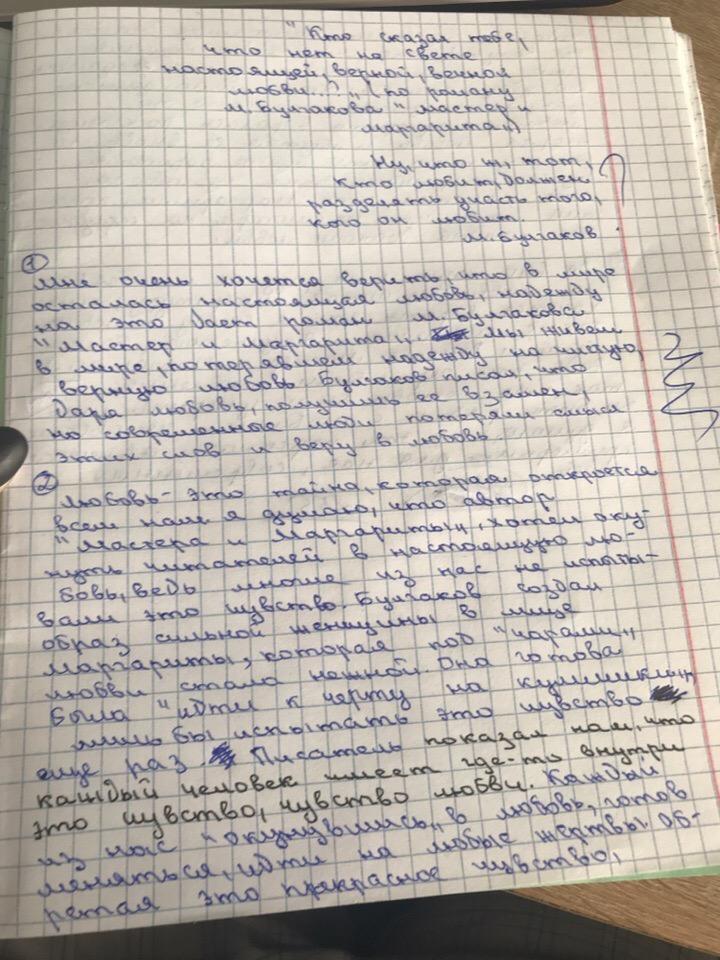 "Кто сказал тебе,
что нет на свете
настоящей, верной, вечной
любви...?" (по роману
М. Булгакова "Мастер и
Маргарита")
Ну, что ж, тот,
кто любит, должен
разделять участь того,
кого он любит.
М. Булгаков.
1
Мне очень хочется верить, что в мире
осталась настоящая любовь, надежду
на это дает роман М. Булгакова
"Мастер и Маргарита". Мы живем
в мире, потерявшем надежду на
верную любовь. Булгаков писал, что
даря любовь, получишь ее взамен,
но современные люди потеряли смысл
этих слов и веру в любовь.
2
Любовь - это тайна, которая откроется
всем нам. Я думаю, что автор
"Мастера и Маргариты", хотел оку-
нуть читателей в настоящую лю-
бовь, ведь многие из нас не испыты-
вали это чувство. Булгаков создал
образ сильной женщины в лице
Маргариты, которая под "чарами"
любви стала нежной. Она готова
была "идти к черту на кулички"
лишь бы испытать это чувство
еще раз. Писатель показал нам, что
каждый человек имеет где-то внутри
это чувство, чувство любви. Каждый
из нас "окунувшись" в любовь, готов
меняться, идти на любые жертвы. Об-
ретая это прекрасное чувство,